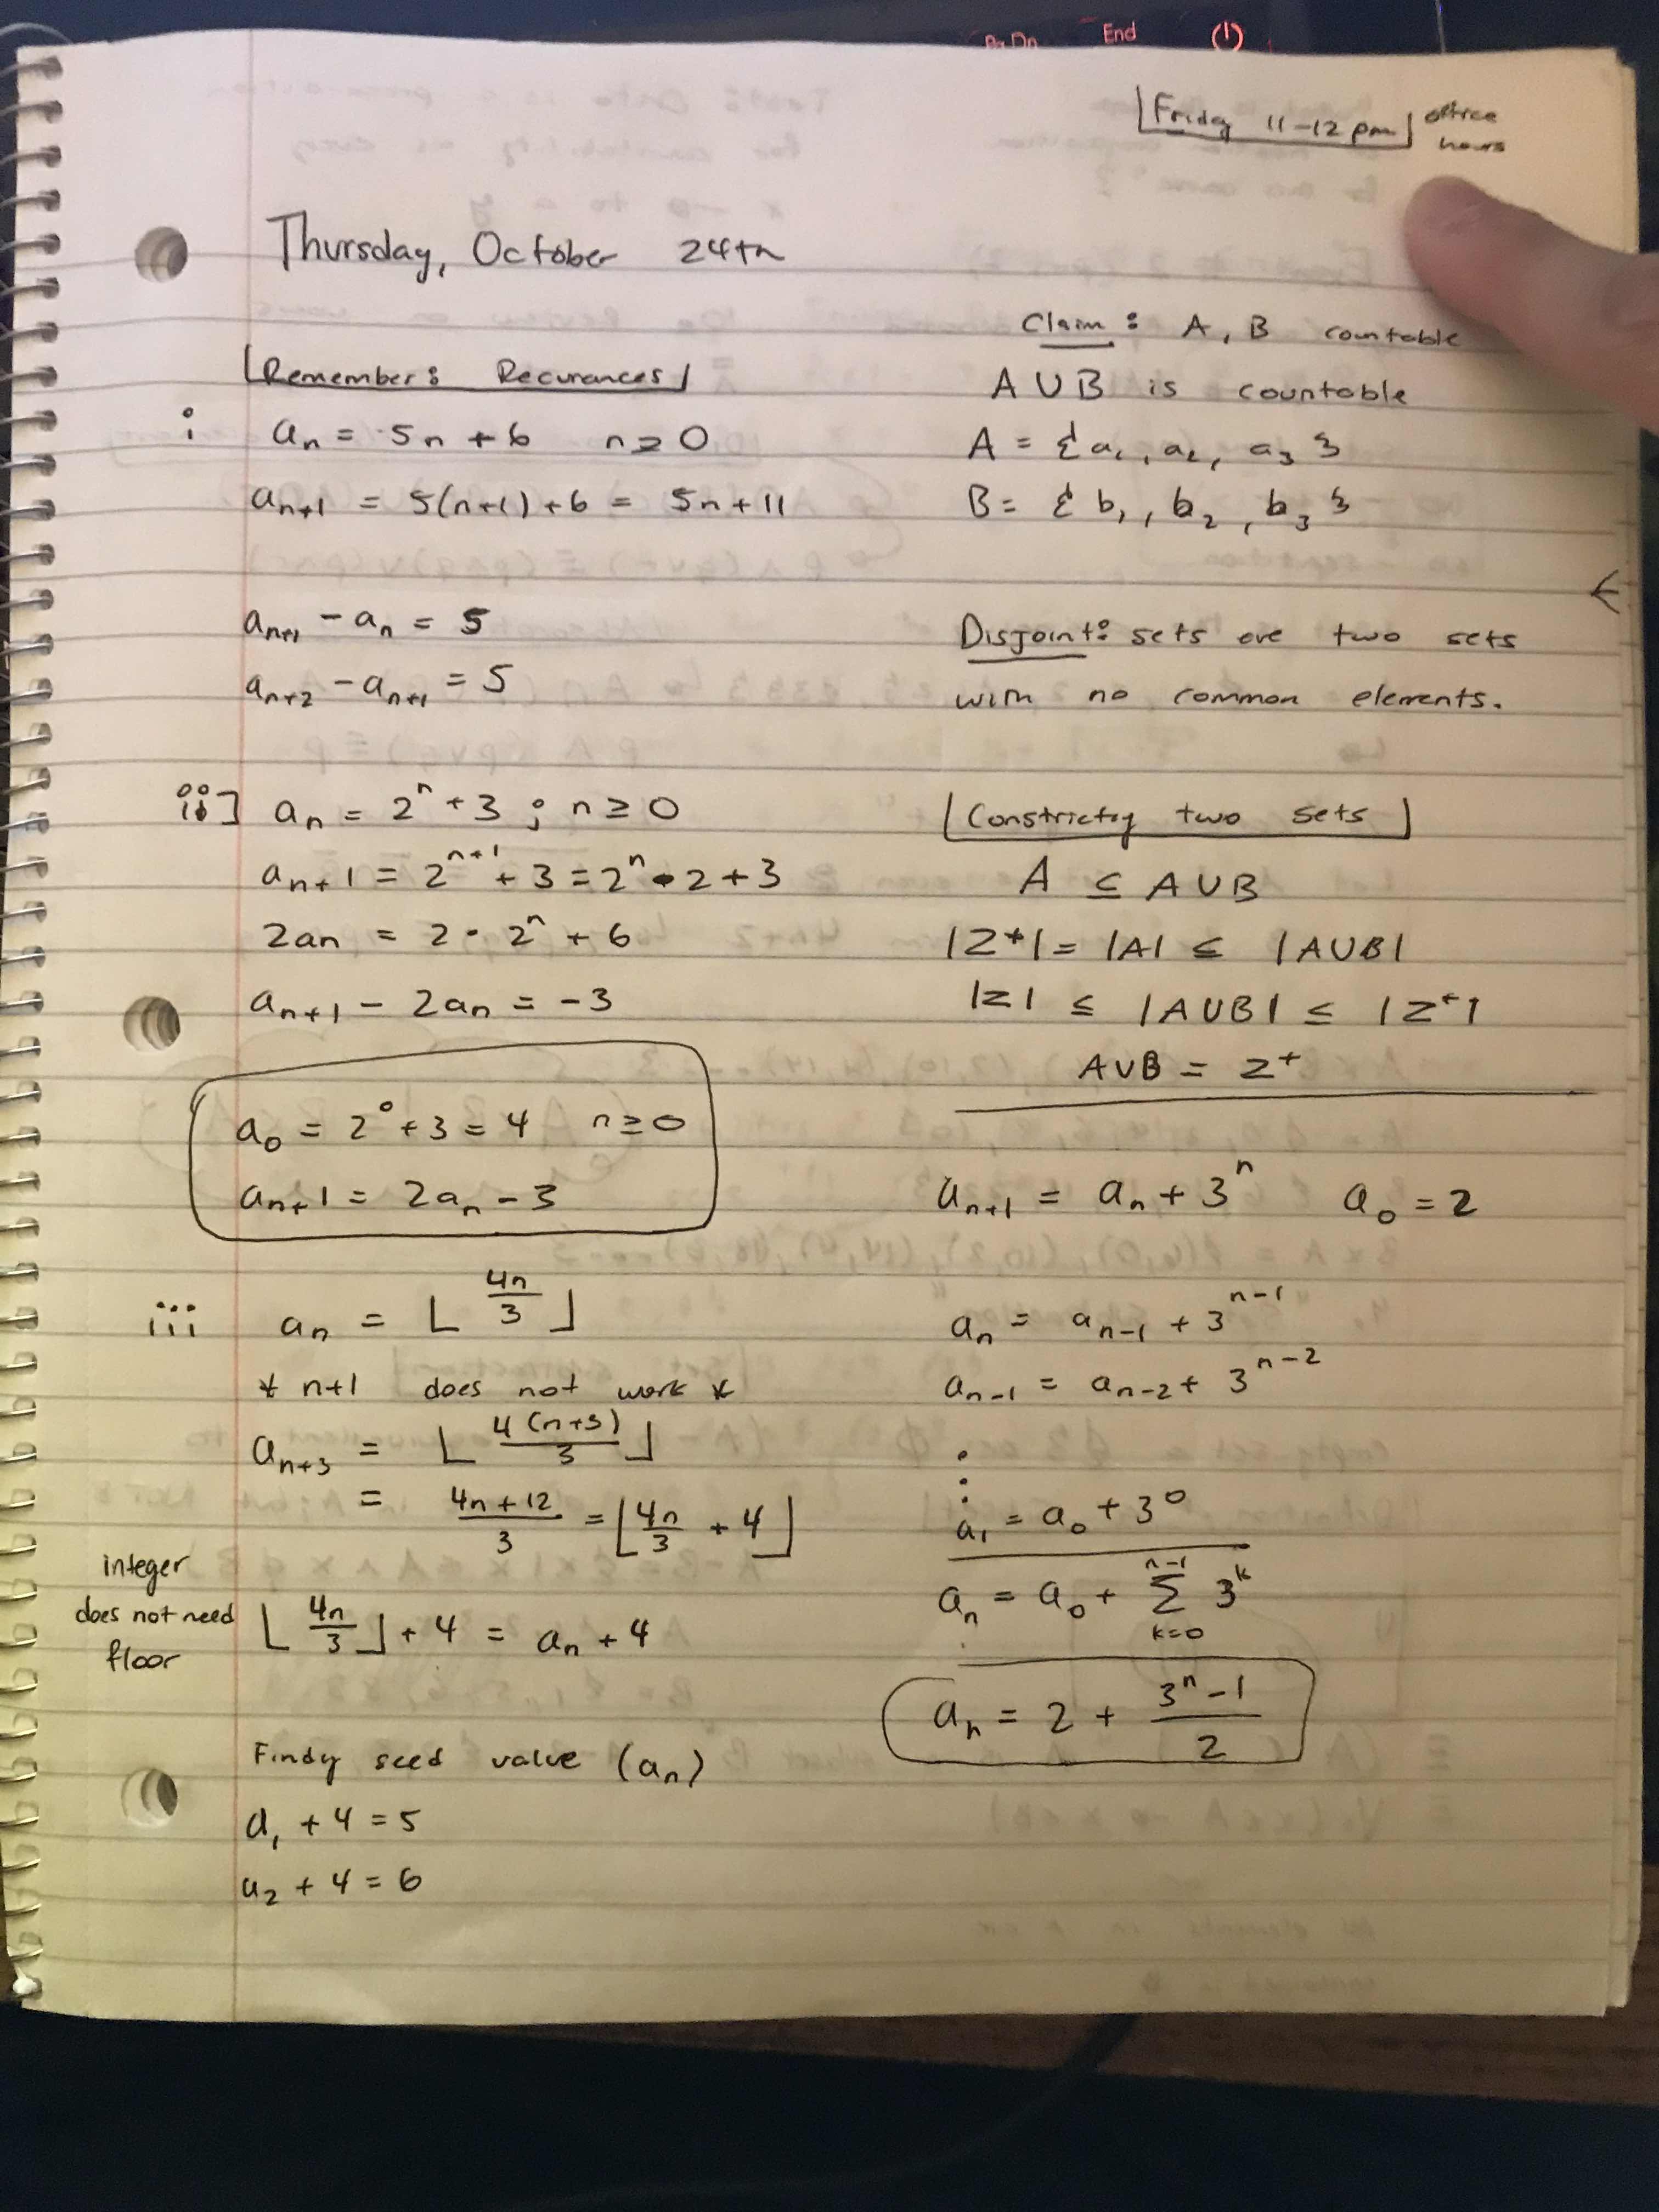 Pg Dn End
Friday 11-12 pm office
hours
Thursday, October 24th
Remember: Recurances
i an = 5n + 6 n ≥ 0
an+1 = 5(n+1)+6 = 5n+11
an+1 - an = 5
an+2 - an+1 = 5
ii] an = 2^n + 3 ; n ≥ 0
an+1 = 2^n+1 + 3 = 2^n • 2 + 3
2an = 2 • 2^n + 6
an+1 - 2an = -3
a0 = 2^0 + 3 = 4 n ≥ 0
an+1 = 2an - 3
iii an = ⌊ 4n/3 ⌋
* n+1 does not work *
an+3 = ⌊ 4(n+3)/3 ⌋
= 4n+12/3 = ⌊ 4n/3 + 4 ⌋
integer
does not need
floor
⌊ 4n/3 ⌋ + 4 = an + 4
Findy seed value (an)
a1 + 4 = 5
a2 + 4 = 6
Claim: A, B countable
A ∪ B is countable
A = {a1, a2, a3 }
B = { b1, b2, b3 }
←
Disjoint: sets are two sets
with no common elements.
Constrictg two sets
A ⊆ A ∪ B
|Z+| = |A| ≤ |A∪B|
|Z| ≤ |A∪B| ≤ |Z+|
A∪B = Z+
an+1 = an + 3^n a0 = 2
an = an-1 + 3^n-1
an-1 = an-2 + 3^n-2
⋮
a1 = a0 + 3^0
an = a0 + Σ k=0 n-1 3^k
an = 2 + 3^n - 1/2